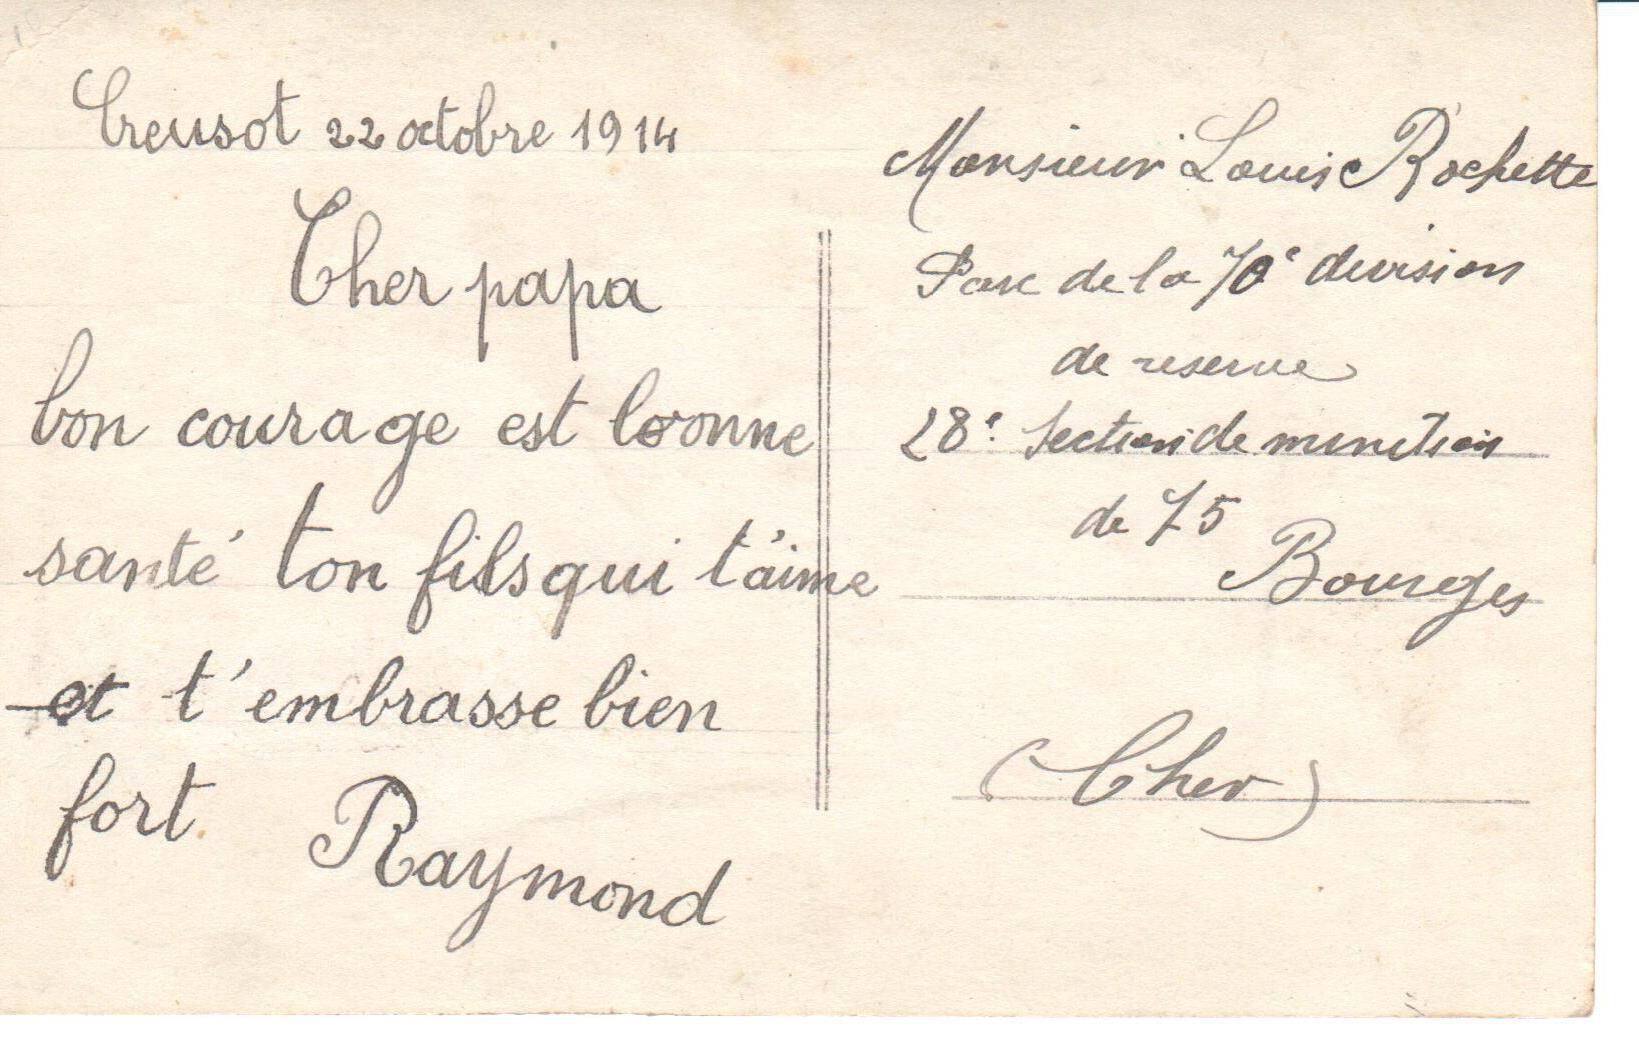 Creusot 22 octobre 1914
Cher papa
bon courage est bonne
santé ton fils qui t'aime
et t'embrasse bien
fort Raymond
Monsieur Louis Rochette
Parc de la 70e division
de reserve
28e Section de munition
de 75
Bourges
(Cher)